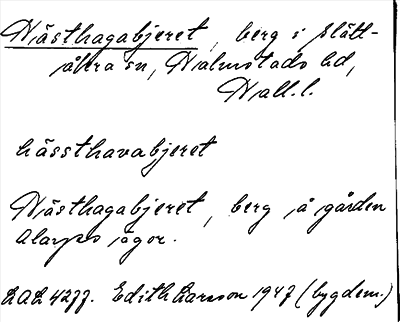 Hästhagabjeret, berg i Slätt-
åkra sn, Halmstads hd,
Hall. l.
hässthavabjeret
Hästhagabjeret, berg på gården
Alarps ägor.
LAL 4277. Edith Larsson 1947 (bygdem.)